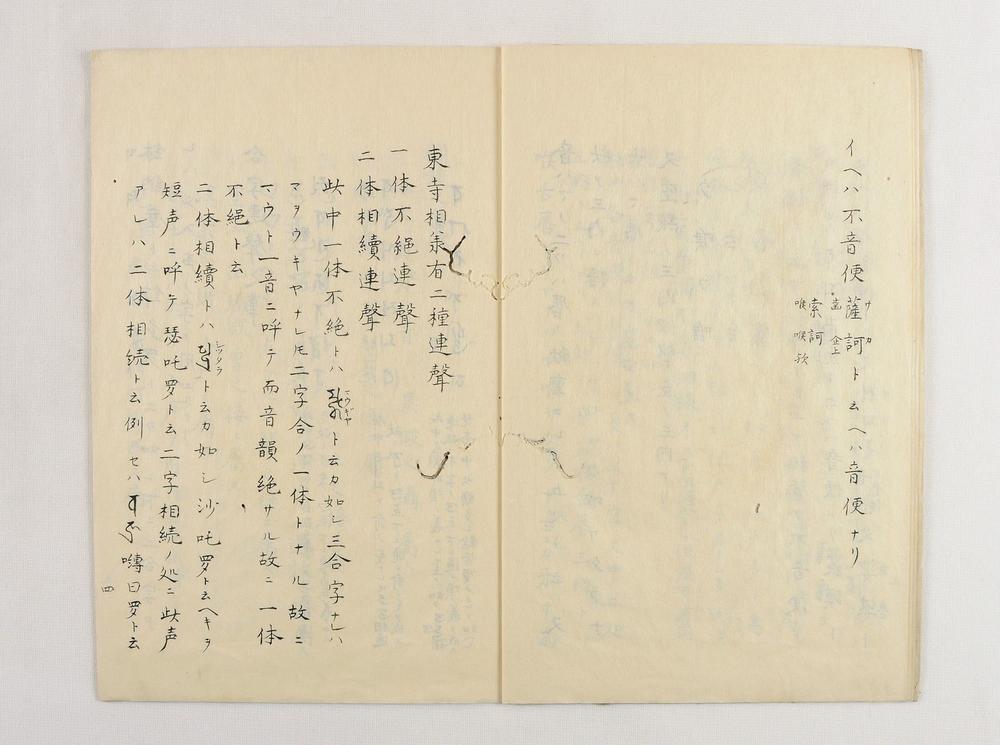 イヘハ不音便薩訶ト云ヘハ音便ナリ
サ カ
歯 企上
索訶
喉 喉歟
東寺相義有二種連聲
一体不絕連聲
二体相續連聲
此中一体不絶トハ ト云カ如シ三合字ナレハ
マウギヤ
マヲウキヤナレ𪜈二字合ノ一体トナル故ニ
マウト一音ニ呼テ而音韻絶サル故ニ一体
不絕ト云
二体相續トハ ト云カ如シ沙吒罗ト云ヘキヲ
シツタラ
短声ニ呼テ瑟吒罗ト云二字相続ノ処ニ此声
アレハ二体相続ト云例セハ 嚩日罗ト云
四